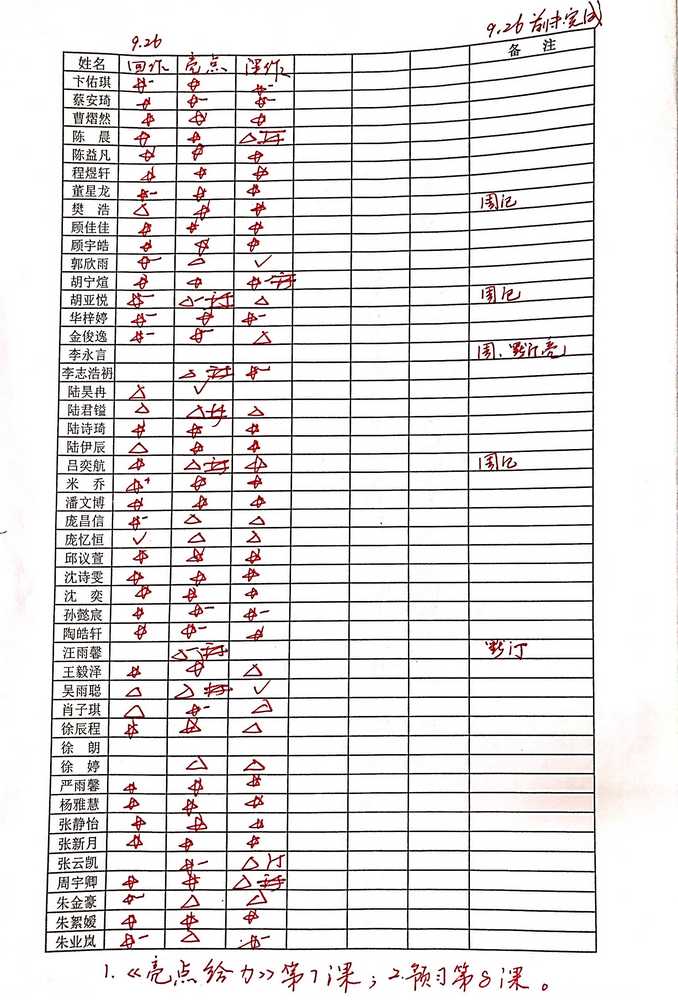 9.26
9.26前未完成
姓名 回作 亮点 课作 备 注
卞佑琪 ☆- ☆ ☆-
蔡安琦 ☆ ☆- ☆-
曹熠然 ☆ ☆ ☆
陈 晨 ☆ ☆ △
陈益凡 ☆ ☆ ☆
程煜轩 ☆ ☆ ☆
董星龙 ☆- ☆ ☆
樊 浩 △ ☆ ☆ 周记
顾佳佳 ☆ ☆ ☆
顾宇皓 ☆ ☆ ☆
郭欣雨 ☆- △ ✓
胡宁煊 ☆ ☆ ☆-
胡亚悦 ☆- △- △ 周记
华梓婷 ☆- ☆ ☆-
金俊逸 ☆- ☆- △
李永言 周、默订亮
李志浩礽 △ ☆-
陆昊冉 △ ✓
陆君镒 △ △ △
陆诗琦 ☆ ☆ ☆
陆伊辰 △ ☆ ☆
吕奕航 ☆ △ ☆ 周记
米 乔 ☆+ ☆ ☆
潘文博 ☆ ☆ ☆
庞昌信 ☆- △ △
庞忆恒 ✓ △ △
邱议萱 ☆ ☆ ☆
沈诗雯 ☆ ☆ ☆
沈 奕 ☆ ☆ ☆
孙懿宸 ☆ ☆- ☆-
陶皓轩 ☆ ☆- ☆
汪雨馨 △- 默订
王毅泽 ☆ ☆ △
吴雨聪 △ △ ✓
肖子琪 △ ☆- △
徐辰程 ☆ ☆ △
徐 朗
徐 婷 △ △
严雨馨 ☆ ☆ ☆
杨雅慧 ☆ ☆ ☆
张静怡 ☆ ☆ ☆
张新月 ☆ ☆ ☆
张云凯 ☆- △ 订
周宇卿 ☆ ☆ △
朱金豪 ☆- △ △
朱絮嫒 ☆ ☆ ☆
朱业岚 ☆- △ ☆-
1.《亮点给力》第7课；2.预习第8课。